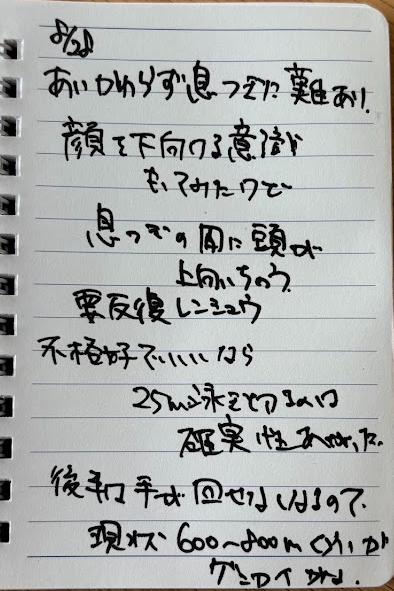 8/28
あいかわらず息つぎに難あり
顔を下向ける意識
もってみたけど
息つぎの間に頭が
上向いちゃう
要反復レンシュウ
不格好でいいなら
25m泳ぎきるのは
確実性あがった
後半は手が回せなくなるので
現状 600〜800mくらいが
ゲンカイかな.